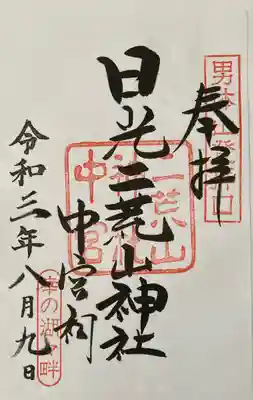 奉拝
男体山登山口
日光二荒山神社
中宮祠
二荒山
神社
中宮
令和三年八月九日
幸の湖畔